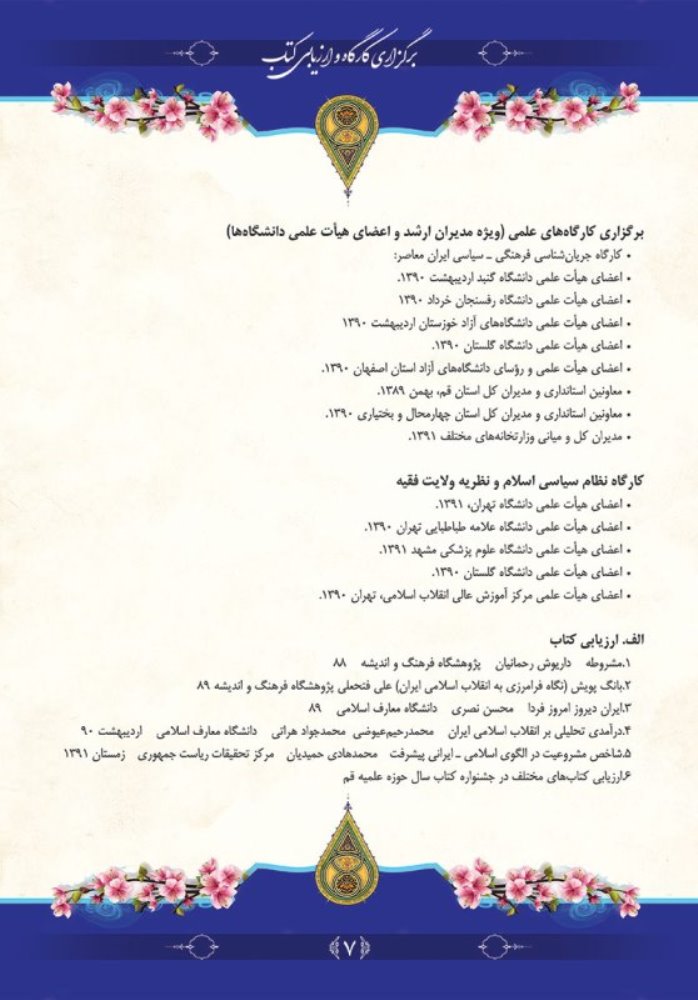 برگزاری کارگاه و ارزیابی کتاب
برگزاری کارگاه‌های علمی (ویژه مدیران ارشد و اعضای هیأت علمی دانشگاه‌ها)
• کارگاه جریان‌شناسی فرهنگی ـ سیاسی ایران معاصر:
• اعضای هیأت علمی دانشگاه گنبد اردیبهشت ۱۳۹۰.
• اعضای هیأت علمی دانشگاه رفسنجان خرداد ۱۳۹۰
• اعضای هیأت علمی دانشگاه‌های آزاد خوزستان اردیبهشت ۱۳۹۰
• اعضای هیأت علمی دانشگاه گلستان ۱۳۹۰.
• اعضای هیأت علمی و رؤسای دانشگاه‌های آزاد استان اصفهان ۱۳۹۰.
• معاونین استانداری و مدیران کل استان قم، بهمن ۱۳۸۹.
• معاونین استانداری و مدیران کل استان چهارمحال و بختیاری ۱۳۹۰.
• مدیران کل و میانی وزارتخانه‌های مختلف ۱۳۹۱.
کارگاه نظام سیاسی اسلام و نظریه ولایت فقیه
• اعضای هیأت علمی دانشگاه تهران، ۱۳۹۱.
• اعضای هیأت علمی دانشگاه علامه طباطبایی تهران ۱۳۹۰.
• اعضای هیأت علمی دانشگاه علوم پزشکی مشهد ۱۳۹۱.
• اعضای هیأت علمی دانشگاه گلستان ۱۳۹۰.
• اعضای هیأت علمی مرکز آموزش عالی انقلاب اسلامی، تهران ۱۳۹۰.
الف. ارزیابی کتاب
۱.مشروطه داریوش رحمانیان پژوهشگاه فرهنگ و اندیشه ۸۸
۲.بانگ پویش (نگاه فرامرزی به انقلاب اسلامی ایران) علی فتحعلی پژوهشگاه فرهنگ و اندیشه ۸۹
۳.ایران دیروز امروز فردا محسن نصری دانشگاه معارف اسلامی ۸۹
۴.درآمدی تحلیلی بر انقلاب اسلامی ایران محمدرحیم‌عیوضی محمدجواد هراتی دانشگاه معارف اسلامی اردیبهشت ۹۰
۵.شاخص مشروعیت در الگوی اسلامی ـ ایرانی پیشرفت محمدهادی حمیدیان مرکز تحقیقات ریاست جمهوری زمستان ۱۳۹۱
۶.ارزیابی کتاب‌های مختلف در جشنواره کتاب سال حوزه علمیه قم
۷